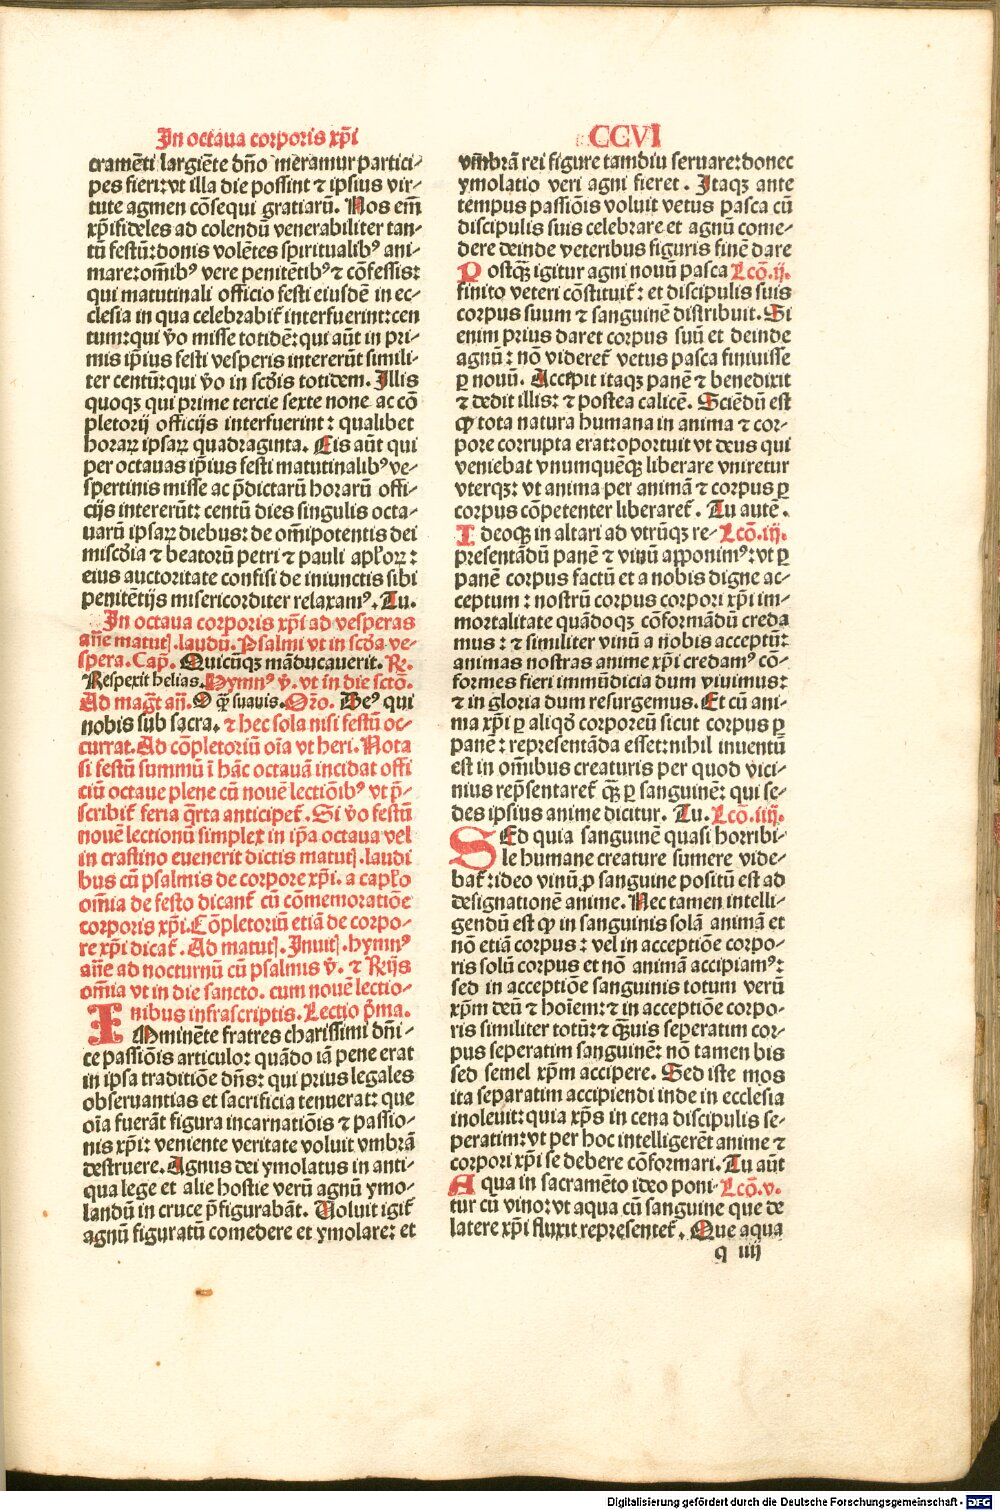 In octaua corporis xp̄i
CCVI
cramēti largiēte dn̄o meramur partici⸗
pes fieri: vt illa die possint ⁊ ipsius vir⸗
tute agmen cōsequi gratiarū. Nos em̄
xp̄ifideles ad colendū venerabiliter tan⸗
tū festū: donis volētes spiritualibꝰ ani⸗
mare: om̄ibꝰ vere penitētibꝰ ⁊ cōfessis:
qui matutinali officio festi eiusdē in ec⸗
clesia in qua celebrabit̄ interfuerint: cen
tum: qui v̄o misse totidē: qui aūt in pri⸗
mis ip̄ius festi vesperis intererūt simili⸗
ter centū: qui v̄o in scd̄is totidem. Illis
quoqꝫ qui prime tercie sexte none ac cō
pletorij officijs interfuerint: qualibet
horaꝝ ipsaꝝ quadraginta. Eis aūt qui
per octauas ip̄ius festi matutinalibꝰ ve⸗
spertinis misse ac p̄dictarū horarū offi⸗
cijs intererūt: centū dies singulis octa⸗
uarū ipsaꝝ diebus: de om̄ipotentis dei
miscd̄ia ⁊ beatorū petri ⁊ pauli apl̄oꝝ:
eius auctoritate confisi de iniunctis sibi
penitētijs misericorditer relaxamꝰ. Tu.
In octaua corporis xp̄i ad vesperas
an̄e matutꝭ. laudū. Psalmi vt in scd̄a ve⸗
spera. Cap̄. Quicūqꝫ māducauerit. R̄.
Respexit helias. Hymnꝰ v̄. vt in die sctō.
Ad maḡt an̄. O q̄ꝫ suauis. Or̄o. Deꝰ qui
nobis sub sacra. ⁊ hec sola nisi festū oc⸗
currat. Ad cōpletoriū oīa vt heri. Nota
si festū summū ī hāc octauā incidat offi
ciū octaue plene cū nouē lectiōibꝰ vt p̄⸗
scribit̄ feria q̄rta anticipet̄. Si v̄o festū
nouē lectionū simplex in ip̄a octaua vel
in crastino euenerit dictis matutꝭ. laudi
bus cū psalmis de corpore xp̄i. a capl̄o
om̄ia de festo dicant̄ cū cōmemoratiōe
corporis xp̄i. Cōpletoriū etiā de corpo⸗
re xp̄i dicat̄. Ad matutꝭ. Inuitꝭ. hymnꝰ
an̄e ad nocturnū cū psalmis v̄. ⁊ R̄ijs
om̄ia vt in die sancto. cum nouē lectio⸗
nibus infrascriptis. Lectio p̄ma.
IMminēte fratres charissimi dn̄i⸗
ce passiōis articulo: quādo iā pene erat
in ipsa traditiōe dn̄s: qui prius legales
obseruantias et sacrificia tenuerat: que
oīa fuerāt figura incarnatiōis ⁊ passio⸗
nis xp̄i: veniente veritate voluit vmbrā
destruere. Agnus dei ymolatus in anti⸗
qua lege et alie hostie verū agnū ymo⸗
landū in cruce p̄figurabāt. Voluit igit̄
agnū figuratū comedere et ymolare: et
vm̄brā rei figure tamdiu seruare: donec
ymolatio veri agni fieret. Itaqꝫ ante
tempus passiōis voluit vetus pasca cū
discipulis suis celebrare et agnū come⸗
dere deinde veteribus figuris finē dare
Postq̄ꝫ igitur agni nouū pasca Lcō.ij.
finito veteri cōstituit̄: et discipulis suis
corpus suum ⁊ sanguinē distribuit. Si
enim prius daret corpus suū et deinde
agnū: nō videret̄ vetus pasca finiuisse
ꝑ nouū. Accepit itaqꝫ panē ⁊ benedixit
⁊ dedit illis: ⁊ postea calicē. Sciēdū est
ꝙ tota natura humana in anima ⁊ cor⸗
pore corrupta erat: oportuit vt deus qui
veniebat vnumquēqꝫ liberare vniretur
vterqꝫ: vt anima per animā ⁊ corpus ꝑ
corpus cōpetenter liberaret̄. Tu autē.
Ideoqꝫ in altari ad vtrūqꝫ re⸗ Lcō.iij.
presentādū panē ⁊ vinū apponimꝰ: vt ꝑ
panē corpus factū et a nobis digne ac⸗
ceptum: nostrū corpus corpori xp̄i im⸗
mortalitate quādoqꝫ cōformādū creda
mus: ⁊ similiter vinū a nobis acceptū:
animas nostras anime xp̄i credamꝰ cō⸗
formes fieri immūdicia dum viuimus:
⁊ in gloria dum resurgemus. Et cū ani⸗
ma xp̄i ꝑ aliqd̄ corporeū sicut corpus ꝑ
panē: representāda esset: nihil inuentū
est in om̄ibus creaturis per quod vici⸗
nius rep̄sentaret̄ q̄ꝫ ꝑ sanguinē: qui se⸗
des ipsius anime dicitur. Tu. Lcō.iiij.
SEd quia sanguinē quasi horribi⸗
le humane creature sumere vide⸗
bat̄: ideo vinū ꝓ sanguine positū est ad
designationē anime. Nec tamen intelli⸗
gendū est ꝙ in sanguinis solā animā et
nō etiā corpus: vel in acceptiōe corpo⸗
ris solū corpus et nō animā accipiamꝰ:
sed in acceptiōe sanguinis totum verū
xp̄m deū ⁊ hoīem: ⁊ in acceptiōe corpo⸗
ris similiter totū: ⁊ q̄ꝫuis seperatim cor⸗
pus seperatim sanguinē: nō tamen bis
sed semel xp̄m accipere. Sed iste mos
ita separatim accipiendi inde in ecclesia
inoleuit: quia xp̄s in cena discipulis se⸗
peratim: vt per hoc intelligerēt anime ⁊
corpori xp̄i se debere cōformari. Tu aūt
Aqua in sacramēto ideo poni⸗ Lcō.v.
tur cū vino: vt aqua cū sanguine que de
latere xp̄i fluxit representet̄. Que aqua
q iiij
Digitalisierung gefördert durch die Deutsche Forschungsgemeinschaft - DFG